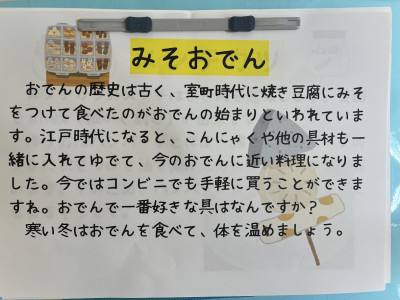 みそおでん
おでんの歴史は古く、室町時代に焼き豆腐にみそ
をつけて食べたのがおでんの始まりといわれていま
す。江戸時代になると、こんにゃくや他の具材も一
緒に入れてゆでて、今のおでんに近い料理になりま
した。今ではコンビニでも手軽に買うことができま
すね。おでんで一番好きな具はなんですか？
寒い冬はおでんを食べて、体を温めましょう。